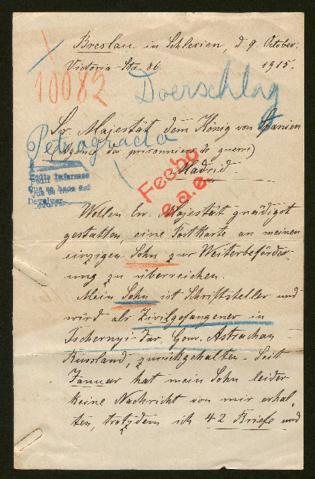 Breslau in Schlesien, d 9 October.
Victoria Str. 86 1915.
10082
Doerschlag
Sr. Majestät dem König von Spanien
Petrograd
(Bureau des prisonniers de guerre)
Madrid
Fecho
Pedir informes
Wollen Ew. Majestät gnädigst
gestatten, eine Postkarte an meinen
einzigen Sohn zur Weiterbeförder-
ung zu überreichen.
Mein Sohn ist Schriftsteller und
wird als Zivilgefangener in
Tschernyi-Jar, Gouv. Astrachan
Russland, zurückgehalten. Seit
Januar hat mein Sohn leider
keine Nachricht von mir erhal-
ten, trotzdem ich 42 Briefe und